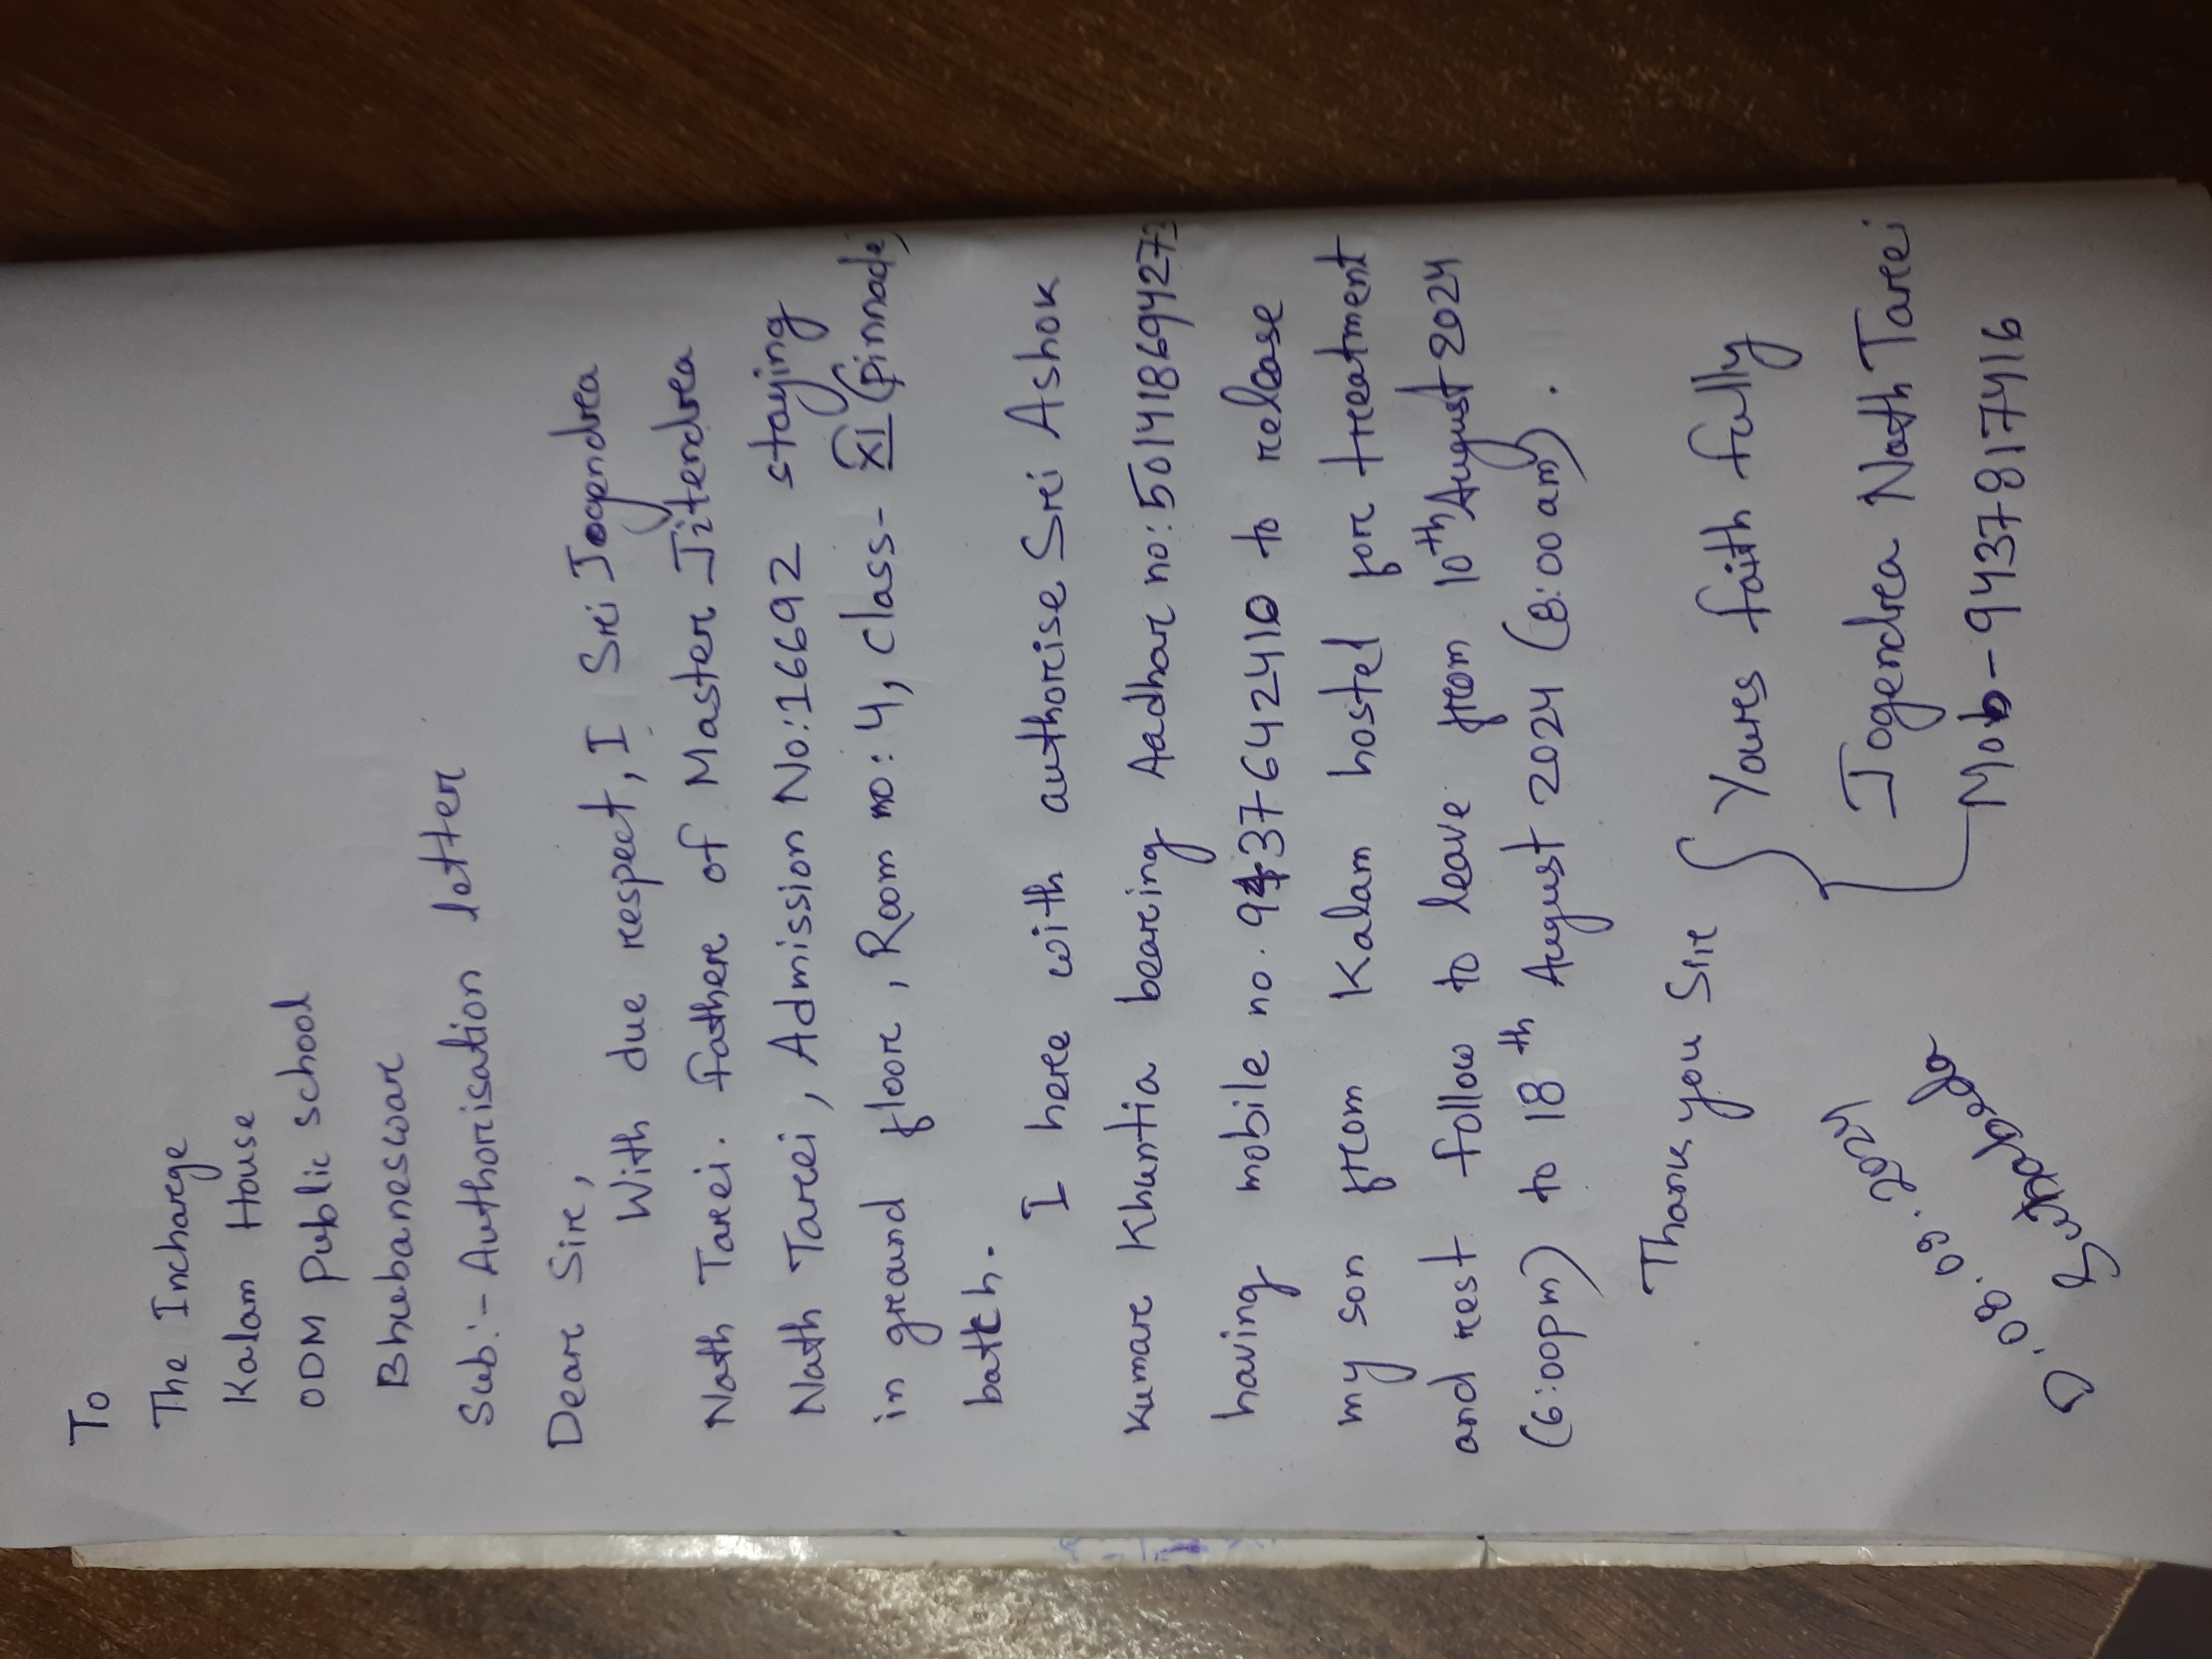 To
The Incharge
Kalam House
ODM Public school
Bhubaneswar
Sub:- Authorisation letter
Dear Sir,
With due respect, I Sri Jogendra
Nath Tarei. father of Master Jitendra
Nath Tarei, Admission No:16692 staying
in ground floor, Room no:4, class- XI (pinnacle)
batch.
I here with authorise Sri Ashok
Kumar Khuntia bearing Aadhar no:501418694273
having mobile no. 9437642410 to release
my son from Kalam hostel for treatment
and rest follow to leave from 10th August 2024
(6:00pm) to 18th August 2024 (8:00 am).
Thank you Sir
Yours faith fully
Jogendra Nath Tarei
Mob-9437817416